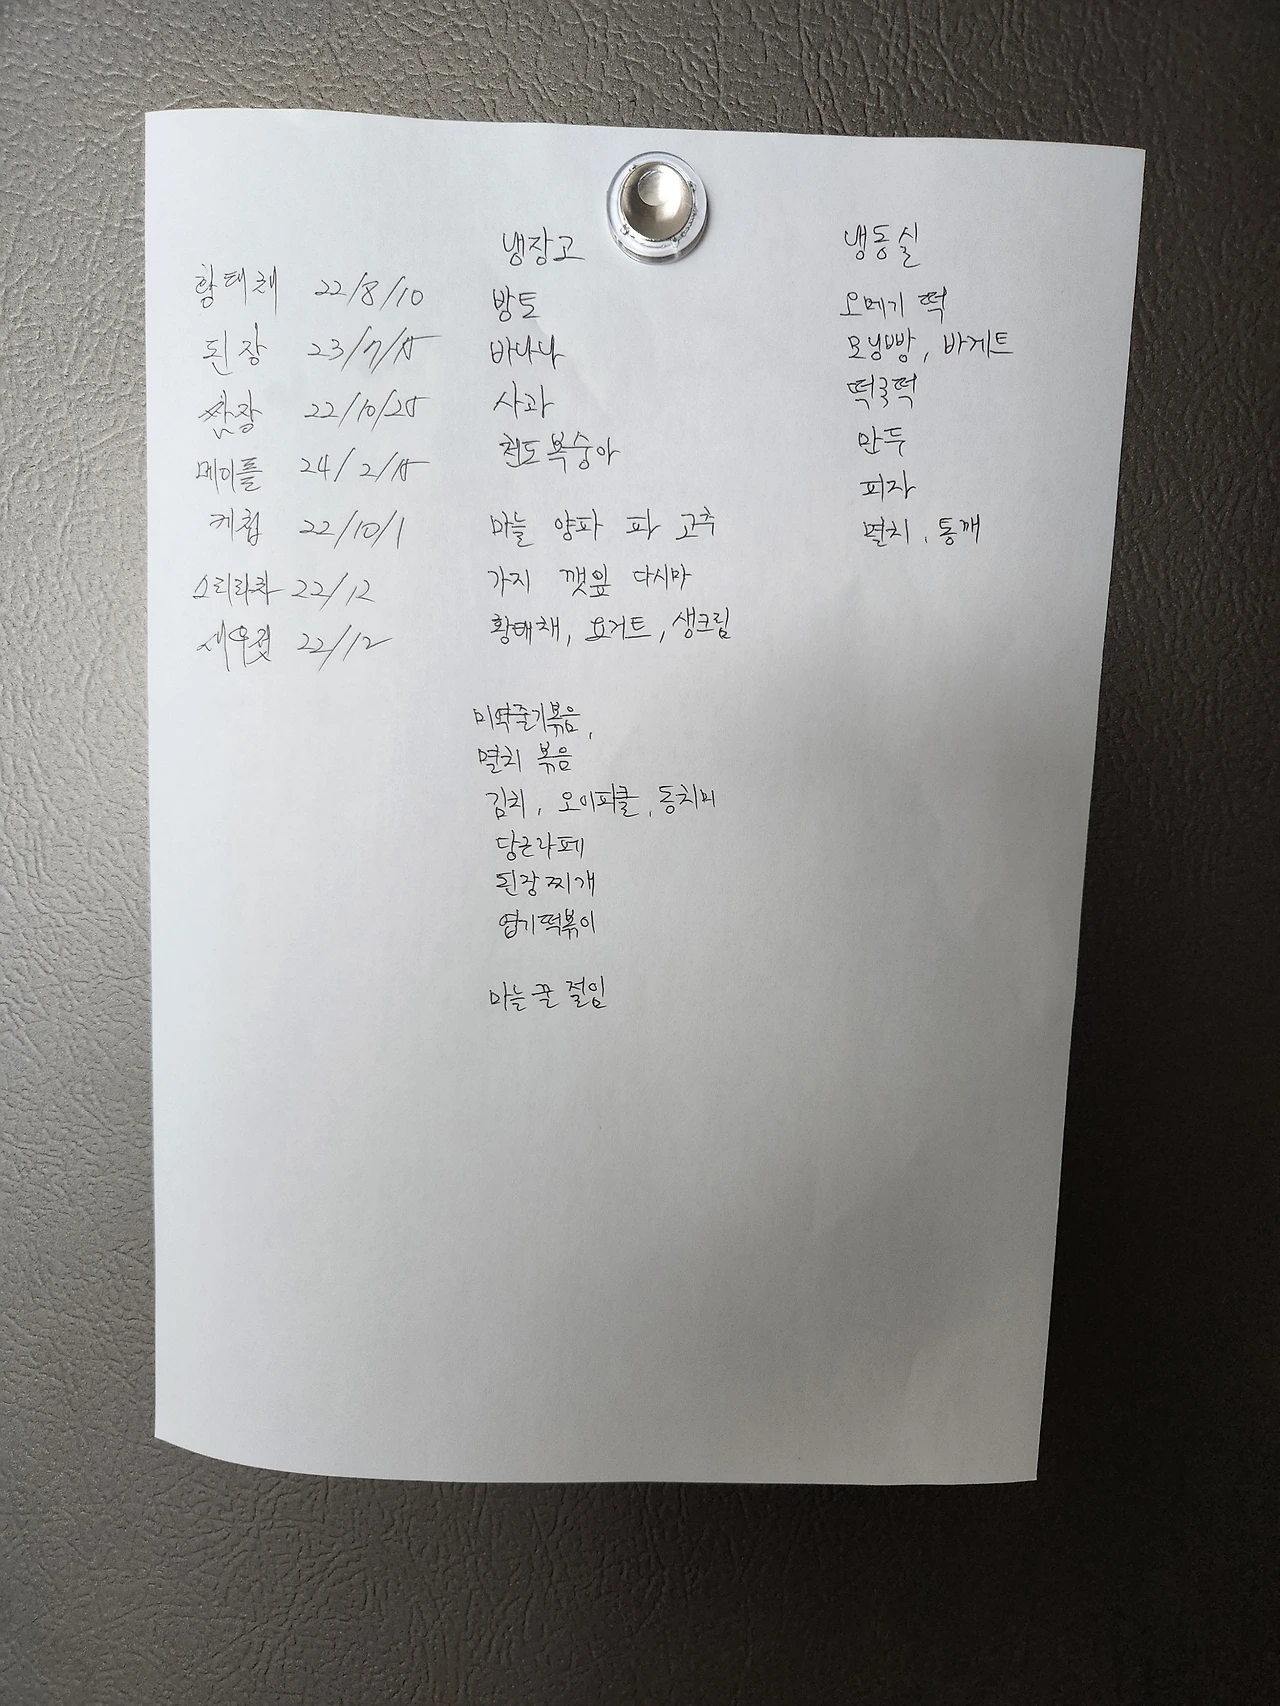 황태채 22/8/10
된장 23/7/15
쌈장 22/10/25
메이플 24/2/15
케첩 22/10/1
스리라차 22/12
새우젓 22/12
냉장고
방토
바나나
사과
천도복숭아
마늘 양파 파 고추
가지 깻잎 다시마
황태채, 요거트, 생크림
미역줄기볶음,
멸치 볶음
김치, 오이피클, 동치미
당근라페
된장찌개
엽기떡볶이
마늘꿀절임
냉동실
오메기 떡
모닝빵, 바게트
떡국떡
만두
피자
멸치, 통깨